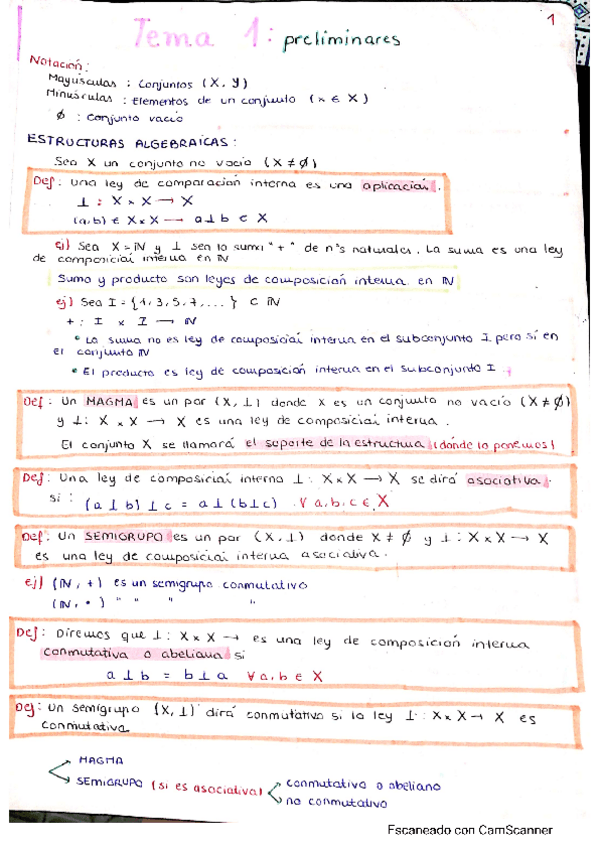 1
Tema 1: preliminares
Notación:
Mayúsculas : Conjuntos (X, Y)
Minúsculas : Elementos de un conjunto (x ∈ X)
∅ : Conjunto vacío
ESTRUCTURAS ALGEBRAICAS:
Sea X un conjunto no vacío (X ≠ ∅)
Def: Una ley de comparación interna es una aplicación.
⊥ : X × X → X
(a,b) ∈ X×X → a⊥b ∈ X
ej) Sea X = ℕ y ⊥ sea la suma "+" de nºs naturales. La suma es una ley
de composición interna en ℕ
Suma y producto son leyes de composición interna en ℕ
ej) Sea I = {1, 3, 5, 7, ...} ⊂ ℕ
+ : I × I → ℕ
• La suma no es ley de composición interna en el subconjunto I pero sí en
el conjunto ℕ
• El producto es ley de composición interna en el subconjunto I
Def: Un MAGMA es un par (X, ⊥) donde X es un conjunto no vacío (X ≠ ∅)
y ⊥: X × X → X es una ley de composición interna.
El conjunto X se llamará el soporte de la estructura (donde lo ponemos)
Def: Una ley de composición interna ⊥: X×X → X se dirá asociativa.
si : (a⊥b)⊥c = a⊥(b⊥c) . ∀ a,b,c ∈ X
Def: Un SEMIGRUPO es un par (X, ⊥) donde X ≠ ∅ y ⊥: X×X → X
es una ley de composición interna asociativa.
ej) (ℕ, +) es un semigrupo conmutativo
(ℕ, •) " " " "
Def: Diremos que ⊥: X×X → es una ley de composición interna
conmutativa o abeliana si
a⊥b = b⊥a ∀ a, b ∈ X
Def: Un semigrupo (X, ⊥) dirá conmutativo si la ley ⊥: X×X → X es
conmutativa
MAGMA
SEMIGRUPO (si es asociativa) conmutativo o abeliano
no conmutativo
Escaneado con CamScanner